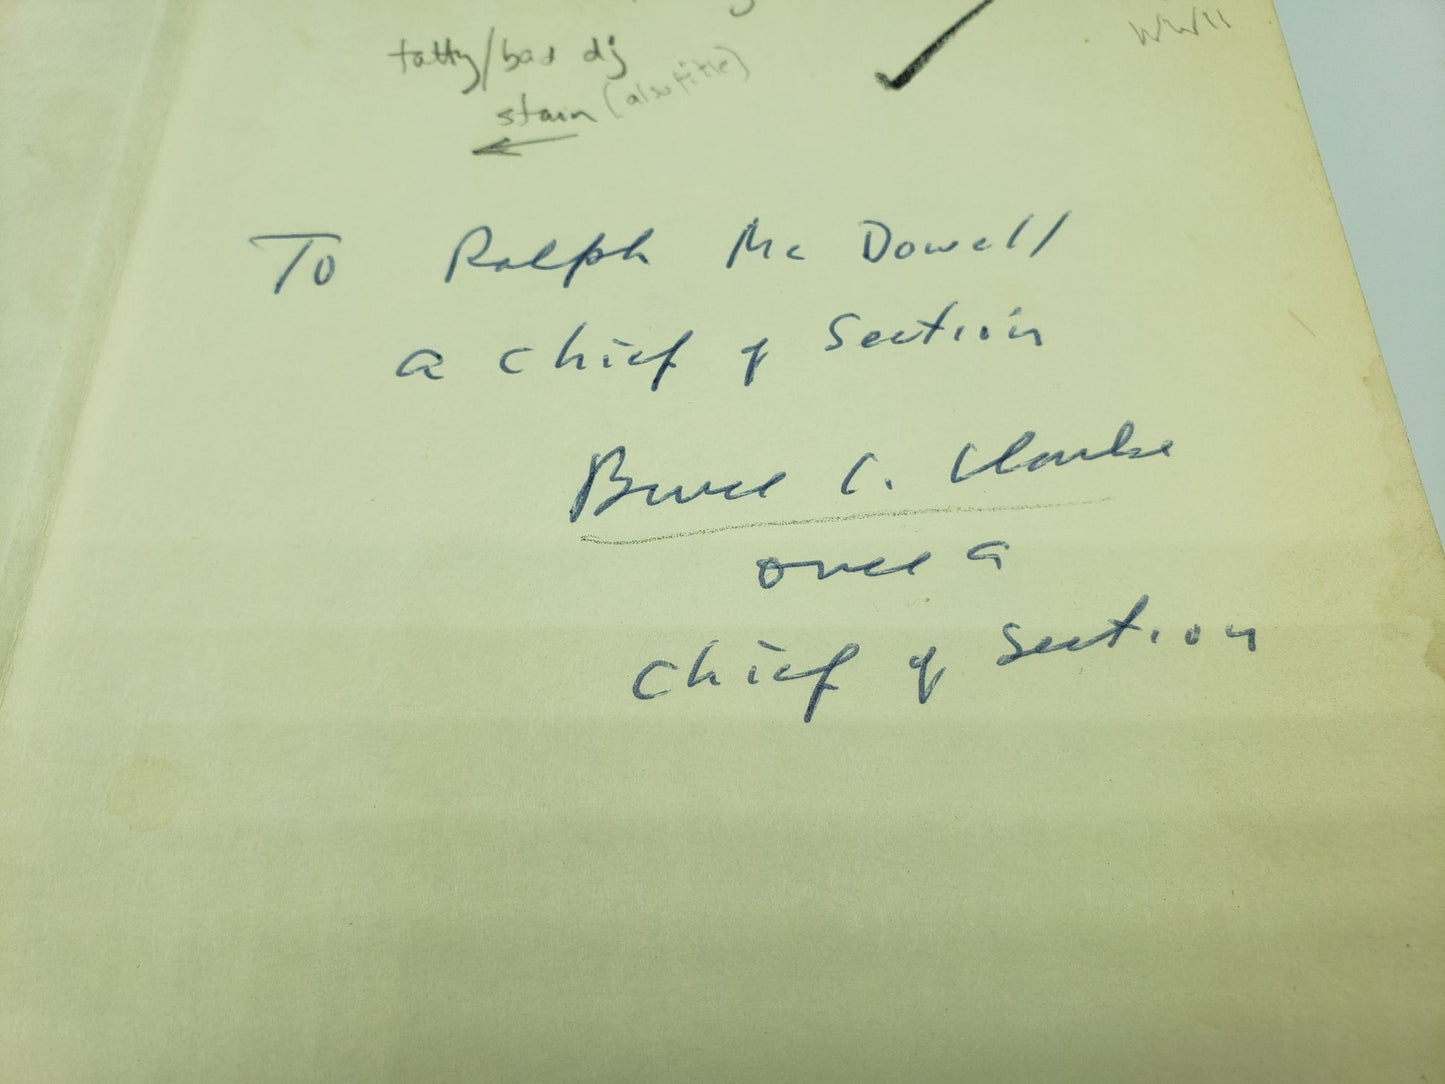 WWII
tatty/bad dj
stain (also title)
To Ralph McDowell
a chief of Section
Bruce C. Clarke
once a
chief of Section